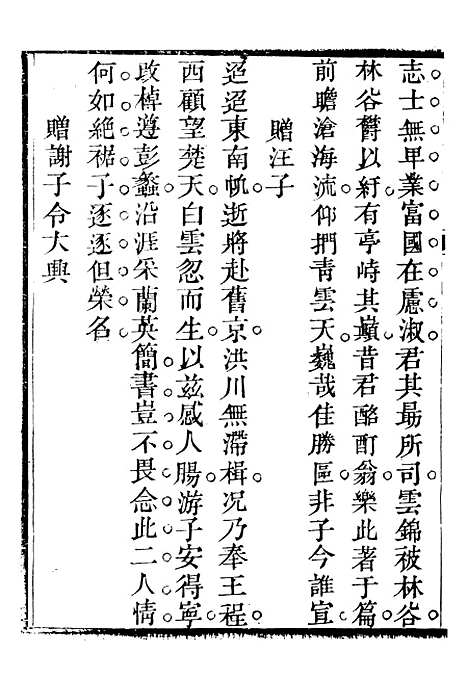 志士無卑業富國在慮淑君其最所司雲錦被林谷
林谷欝以紆有亭峙其巔昔君酩酊翁樂此著于篇
前瞻滄海流仰捫青雲天巍哉佳勝區非子今誰宣
贈汪子
迢迢東南帆逝將赴舊京洪川無滯楫况乃奉王程
西顧望楚天白雲忽而生以玆感人腸游子安得寧
改棹遵彭蠡沿涯采蘭英簡書豈不畏念此二人情
何如絶裾子逐逐但榮名
贈謝子令大興